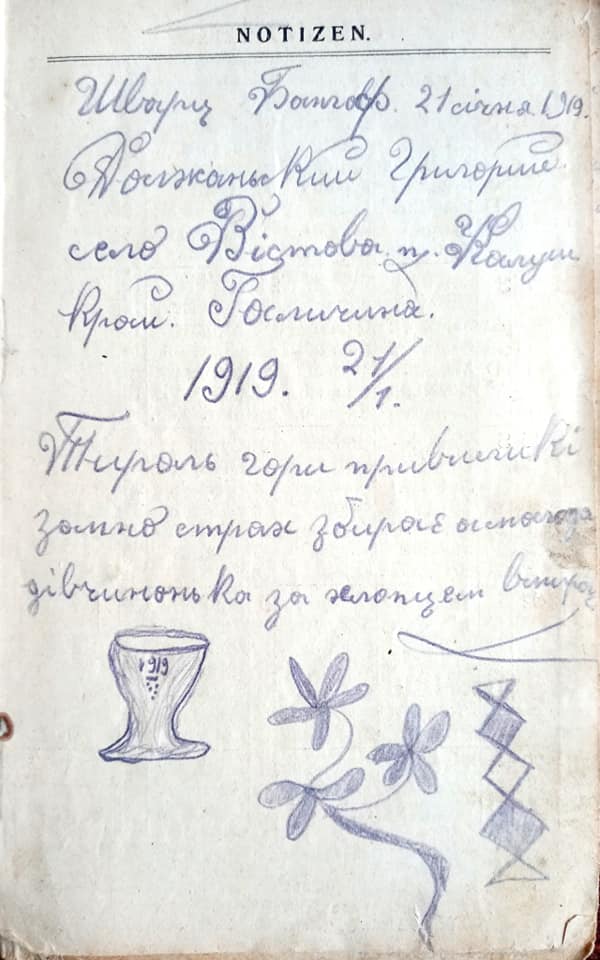 NOTIZEN.
Шварц Бангоф. 21 січня 1919.
Должанський Григорий
село Вістова п. Калуш
Край. Галичина.
1919. 21/1.
Тироль гори привисокі
замно страх збирає а молода
дівчинонька за хлопцем вмирає
1919